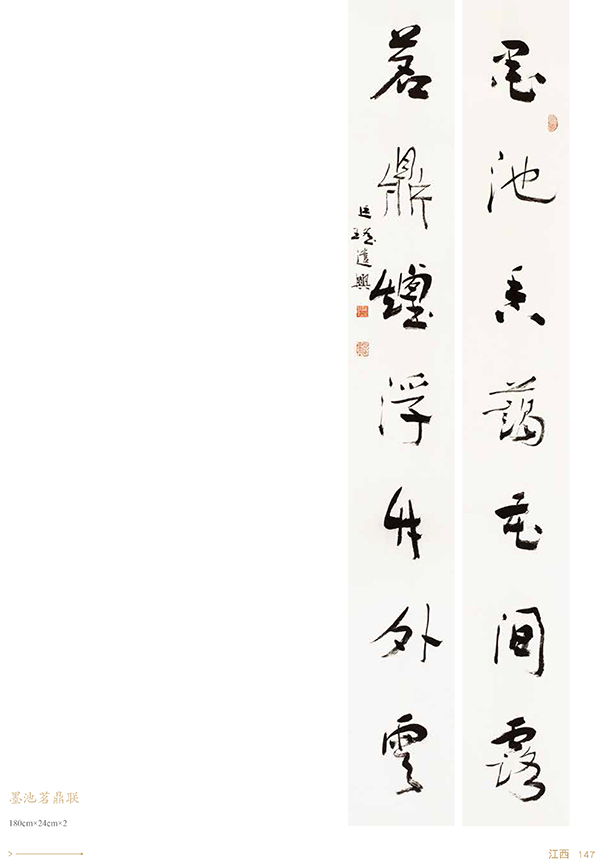 墨池香藹花間露
茗鼎煙浮竹外雲
遣興
墨池茗鼎联
180cm×24cm×2
江西 147